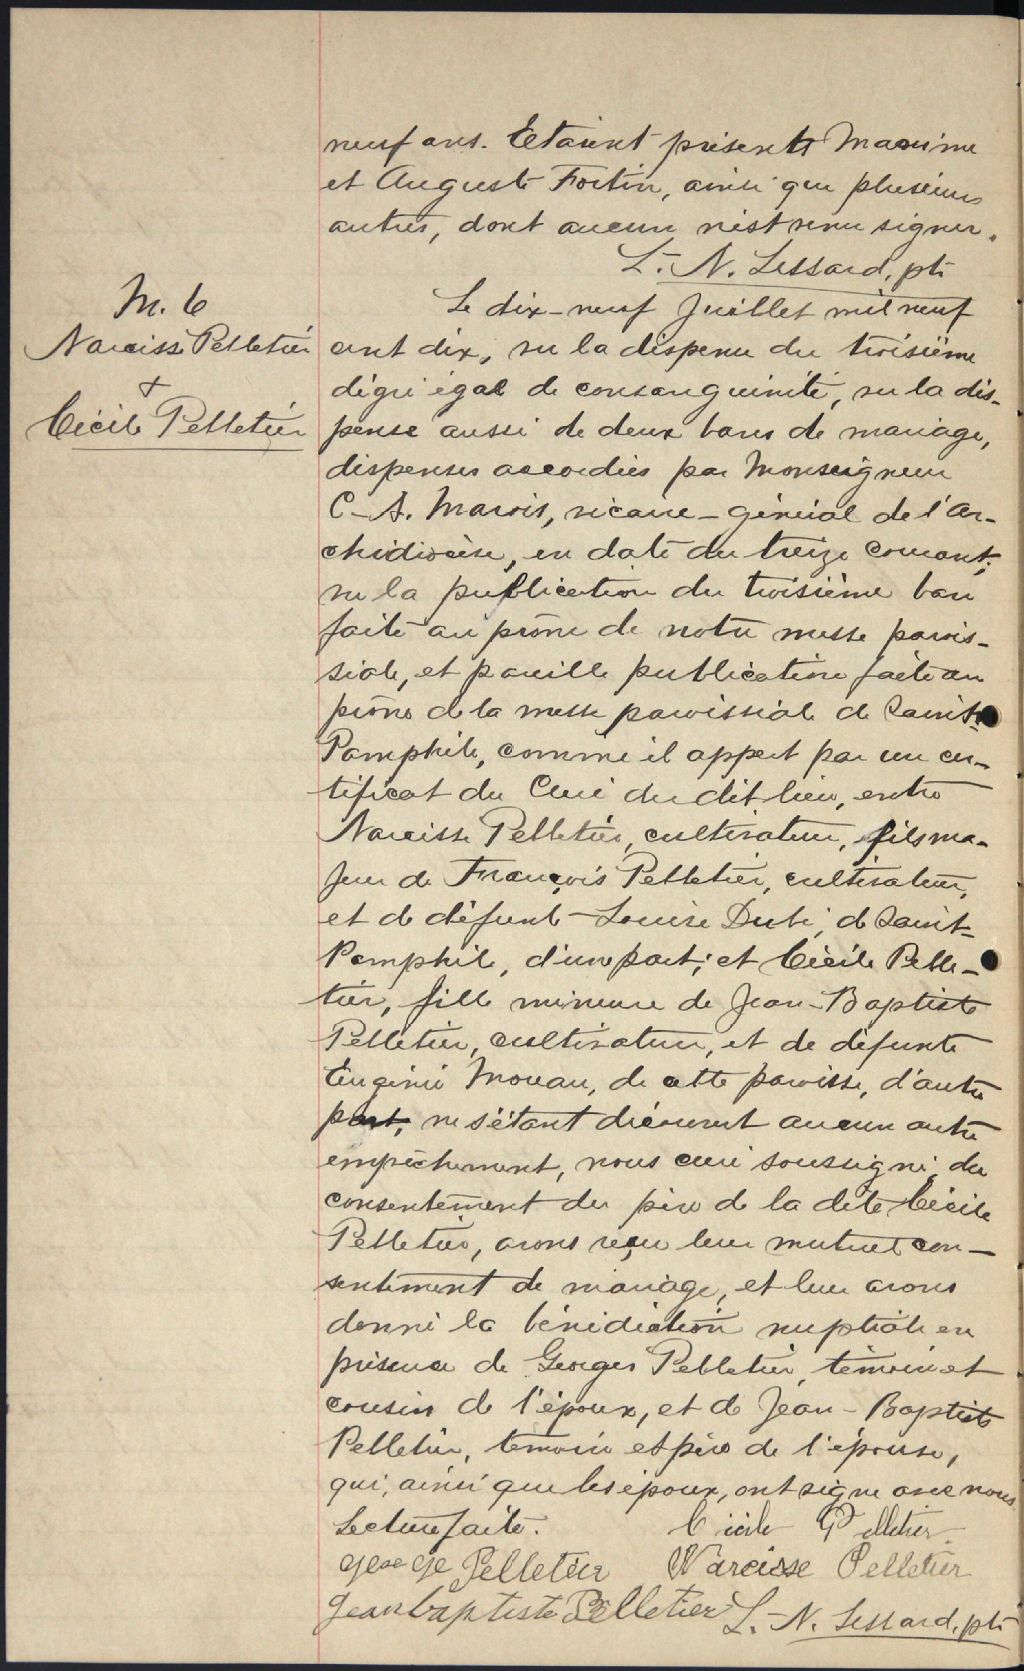 neuf ans. Etaient présents Maxime
et Auguste Fortin, ainsi que plusieurs
autres, dont aucun n'est venu signer.
L.-N. Lessard, ptr
M. 6
Narcisse Pelletier
&
Cécile Pelletier
Le dix-neuf Juillet mil neuf
cent dix, vu la dispense du troisième
dégré égal de consanguinité, vu la dis-
pense aussi de deux bans de mariage,
dispenses accordées par Monseigneur
C-A. Marois, vicaire-général de l'Ar-
chidiocèse, en date du treize courant;
vu la publication du troisième ban
faite au prône de notre messe parois-
siale, et pareille publication faite au
prône de la messe paroissiale de Saint-
Pamphile, comme il appert par un cer-
tificat du Curé du dit lieu, entre
Narcisse Pelletier, cultivateur, fils ma-
jeur de François Pelletier, cultivateur,
et de défunte Louise Dubé, de Saint-
Pamphile, d'une part; et Cécile Pelle-
tier, fille mineure de Jean-Baptiste
Pelletier, cultivateur, et de défunte
Eugénie Morau, de cette paroisse, d'autre
part, ne s'étant découvert aucun autre
empêchement, nous curé soussigné, du
consentement du père de la dite Cécile
Pelletier, avons reçu leur mutuel con-
sentement de mariage, et leur avons
donné la bénédiction nuptiale en
présence de Georges Pelletier, témoin et
cousin de l'époux, et de Jean-Baptiste
Pelletier, témoin et père de l'épouse,
qui, ainsi que les époux, ont signé avec nous
Lecture faite. Cécile Pelletier
George Pelletier Narcisse Pelletier
Jean baptiste Pelletier L.-N. Lessard, ptr